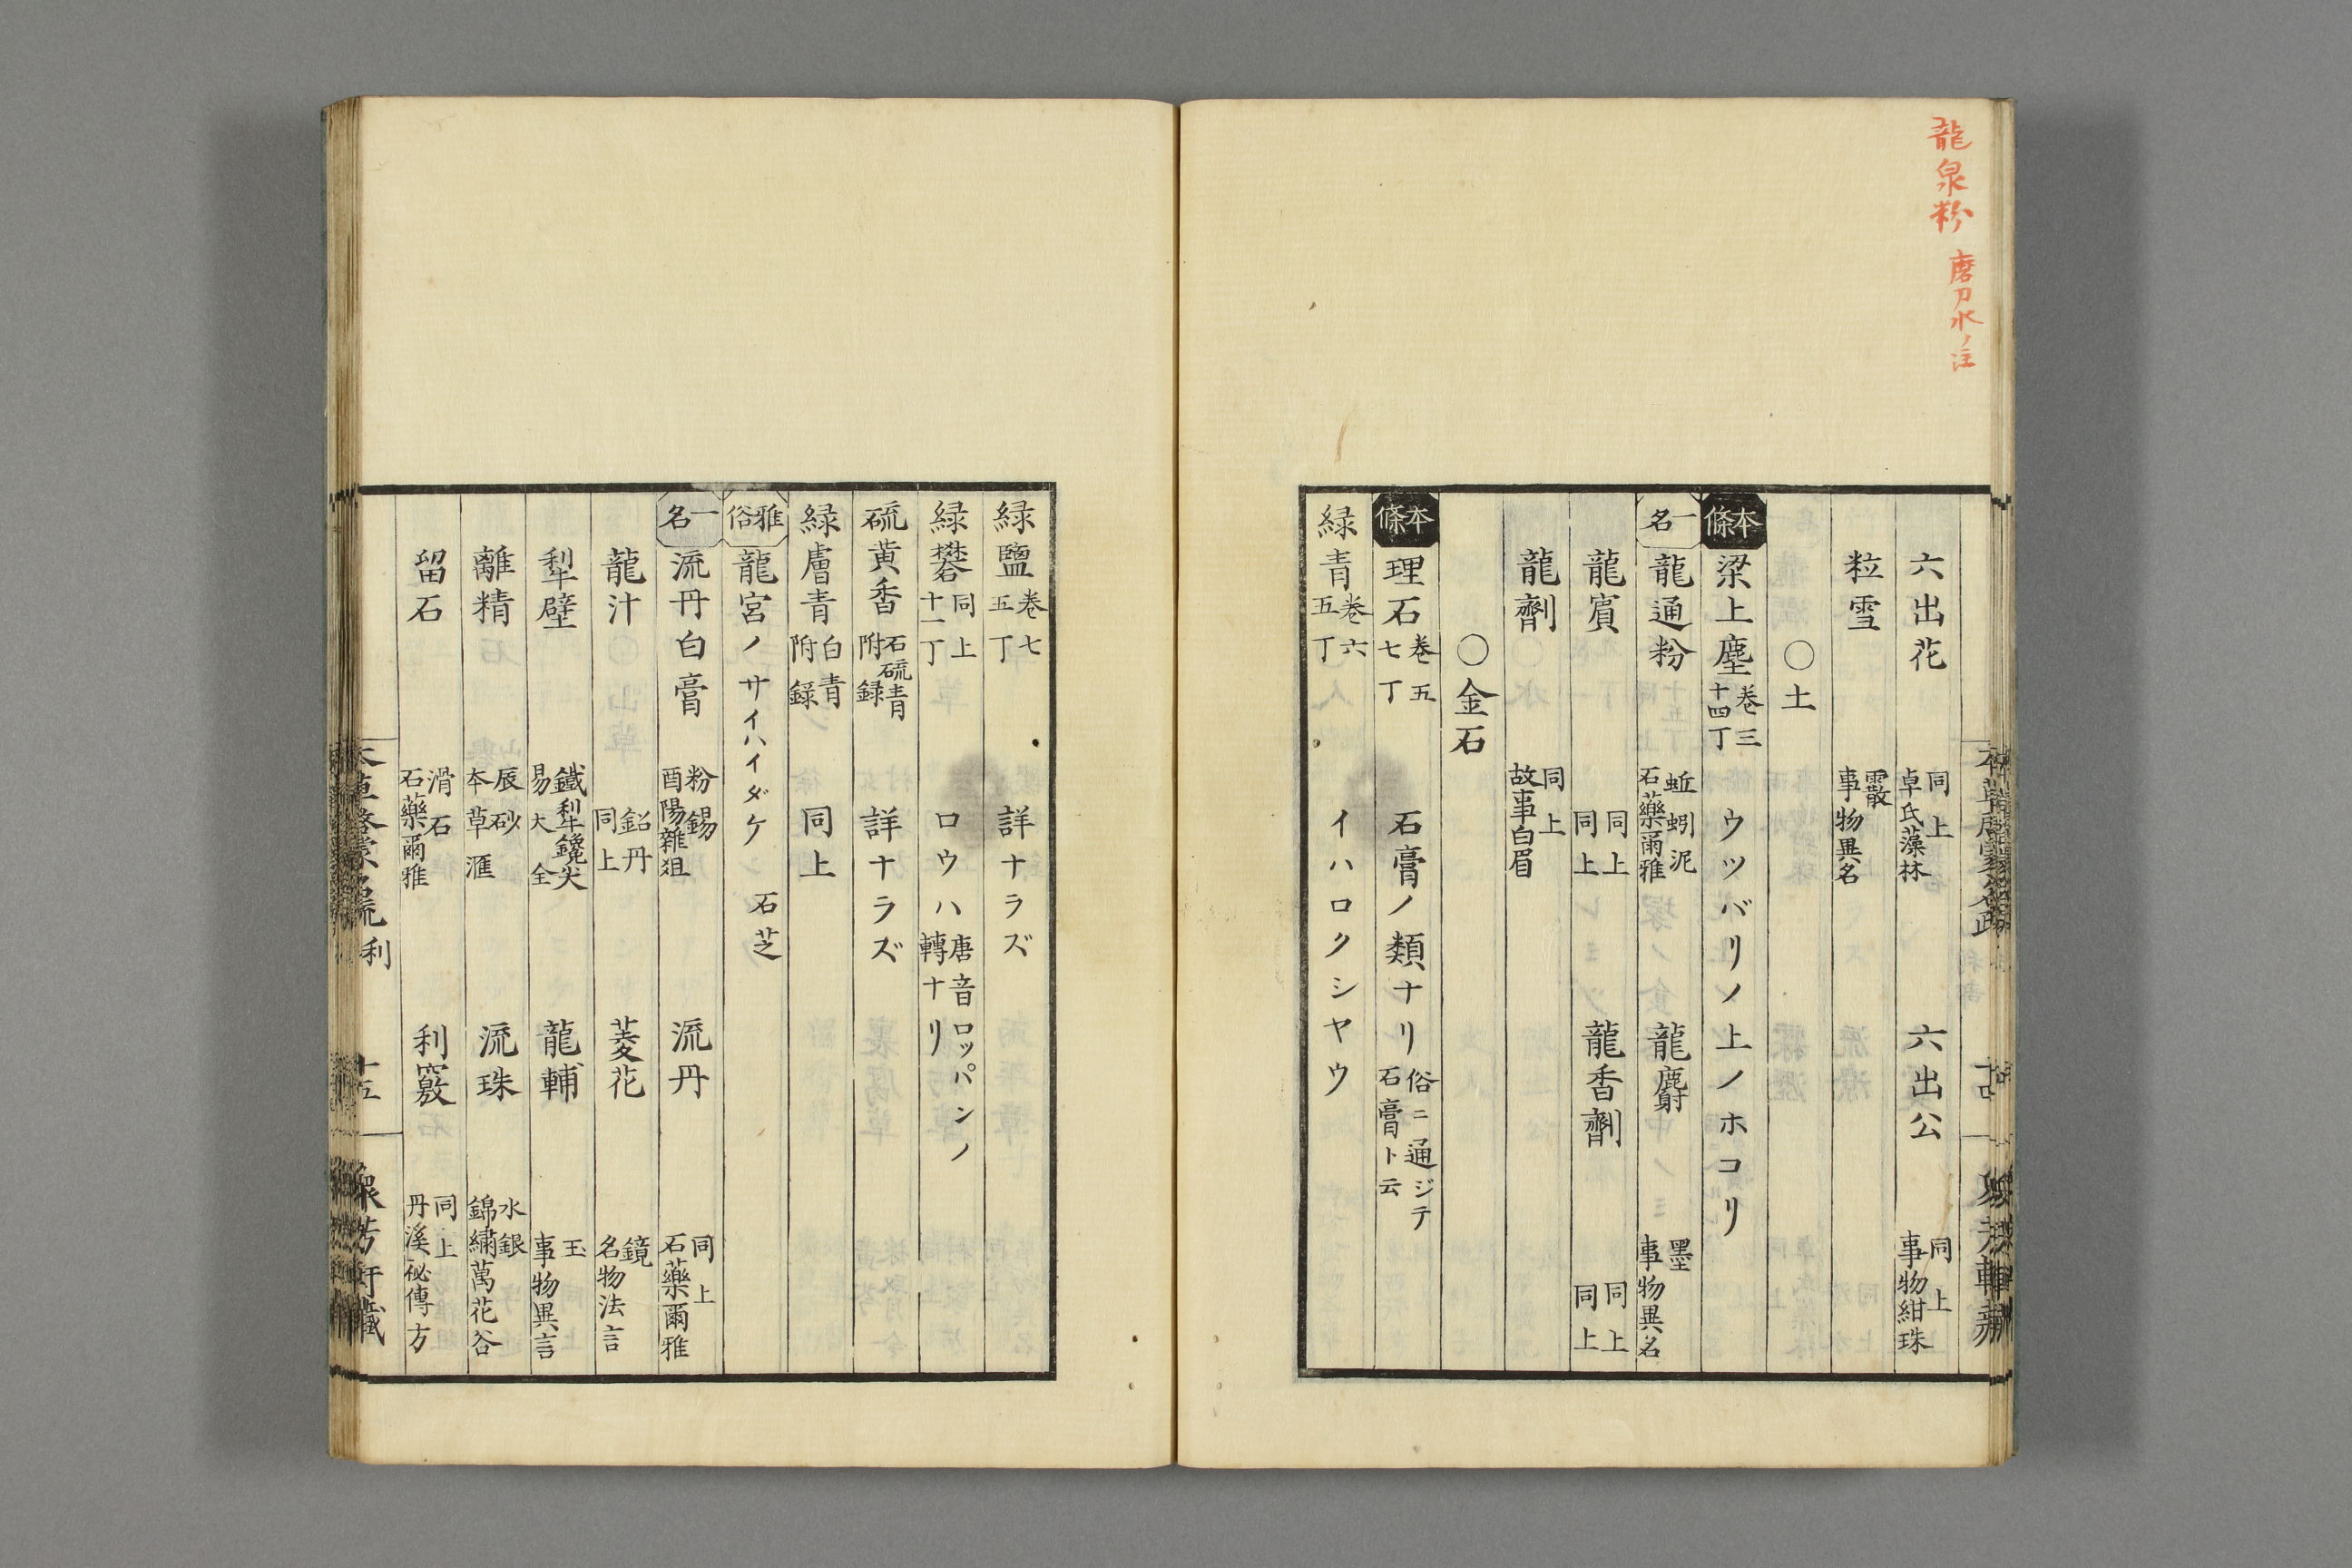 龍泉粉 磨刀水ノ注
六出花 同上 卓氏藻林 六出公 同上 事物紺珠
粒雪 霰 事物異名
〇土
本條 梁上塵 卷三 十四丁 ウツバリノ上ノホコリ
一名 龍通粉 蚯蚓泥 石藥爾雅 龍麝 墨 事物異名
龍賓 同上 同上 龍香劑 同上 同上
龍劑 同上 故事白眉
〇金石
本條 理石 卷五 七丁 石膏ノ類ナリ 俗ニ通ジテ 石膏ト云
緑青 卷六 五丁 イハロクシヤウ
緑鹽 卷七 五丁 詳ナラズ
緑礬 同上 十一丁 ロウハ 唐音ロッパンノ 轉ナリ
硫黄香 石硫青 附録 詳ナラズ
緑膚青 白青 附録 同上
雅俗 龍宮ノサイハイダケ 石芝
一名 流丹白膏 粉錫 酉陽雜俎 流丹 同上 石藥爾雅
龍汁 鉛丹 同上 菱花 鏡 名物法言
犁壁 鐵犁鑱尖 易大全 龍輔 玉 事物異言
離精 辰砂 本草滙 流珠 水銀 錦繍萬花谷
留石 滑石 石藥爾雅 利竅 同上 丹溪秘傳方
利 十五